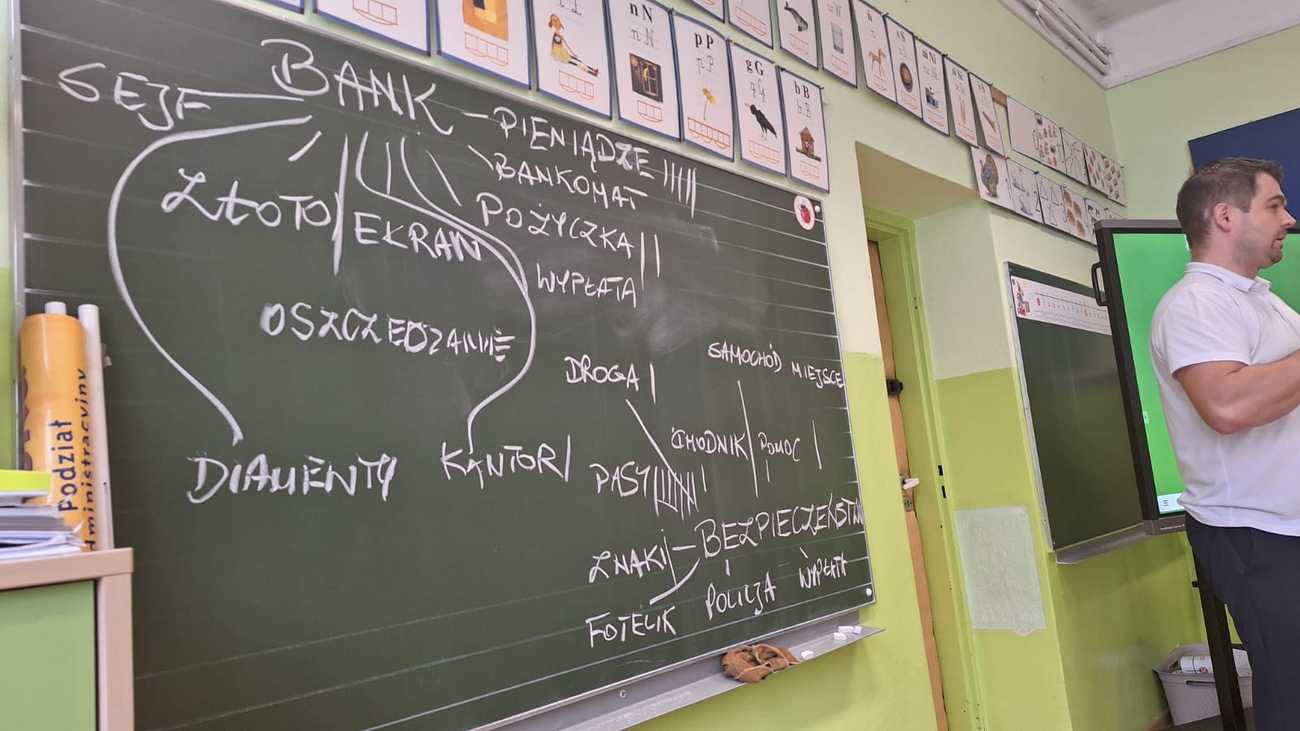 BANK
SEJF
PIENIĄDZE
BANKOMAT
ZŁOTO
EKRAN
POŻYCZKA
WYPŁATA
OSZCZĘDZANIE
DIAMENTY
KANTOR
DROGA
SAMOCHÓD MIEJSCE
CHODNIK POMOC
PASY
ZNAKI – BEZPIECZEŃSTW
FOTELIK POLICJA WYPŁATA
nN
pP
gG
bB
Podział
administracyjny